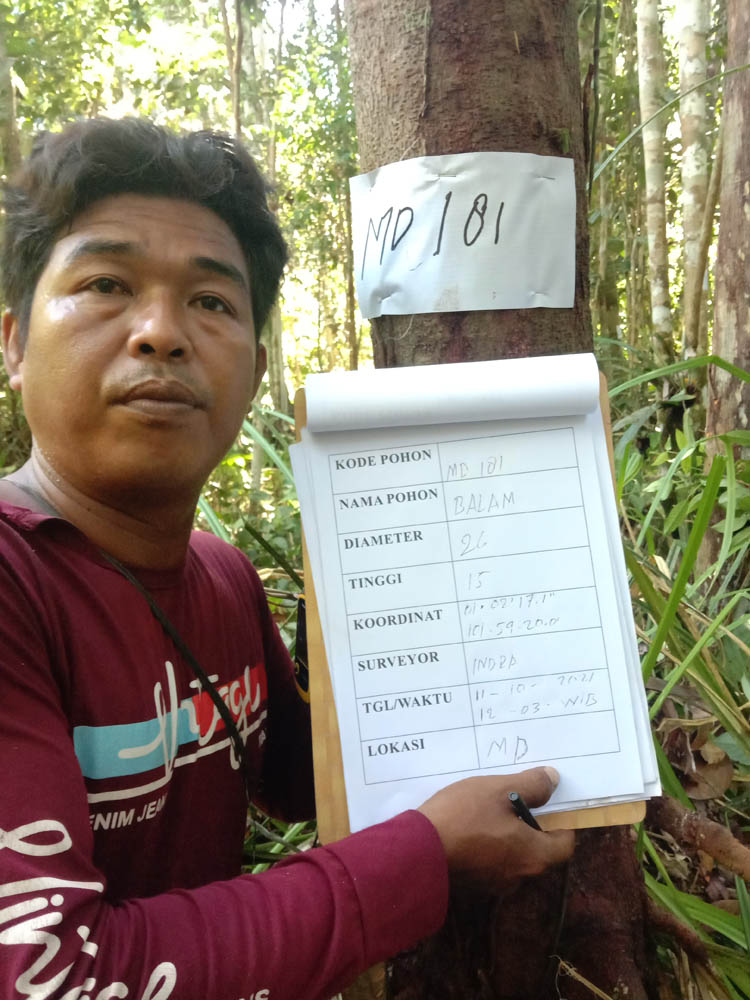 MD 181
KODE POHON MD 181
NAMA POHON BALAM
DIAMETER 26
TINGGI 15
KOORDINAT 01.02'17.1"
101.59.20.0
SURVEYOR INDRA
TGL/WAKTU 11-10-2021
12-03-WIB
LOKASI MD
ENIM JEA